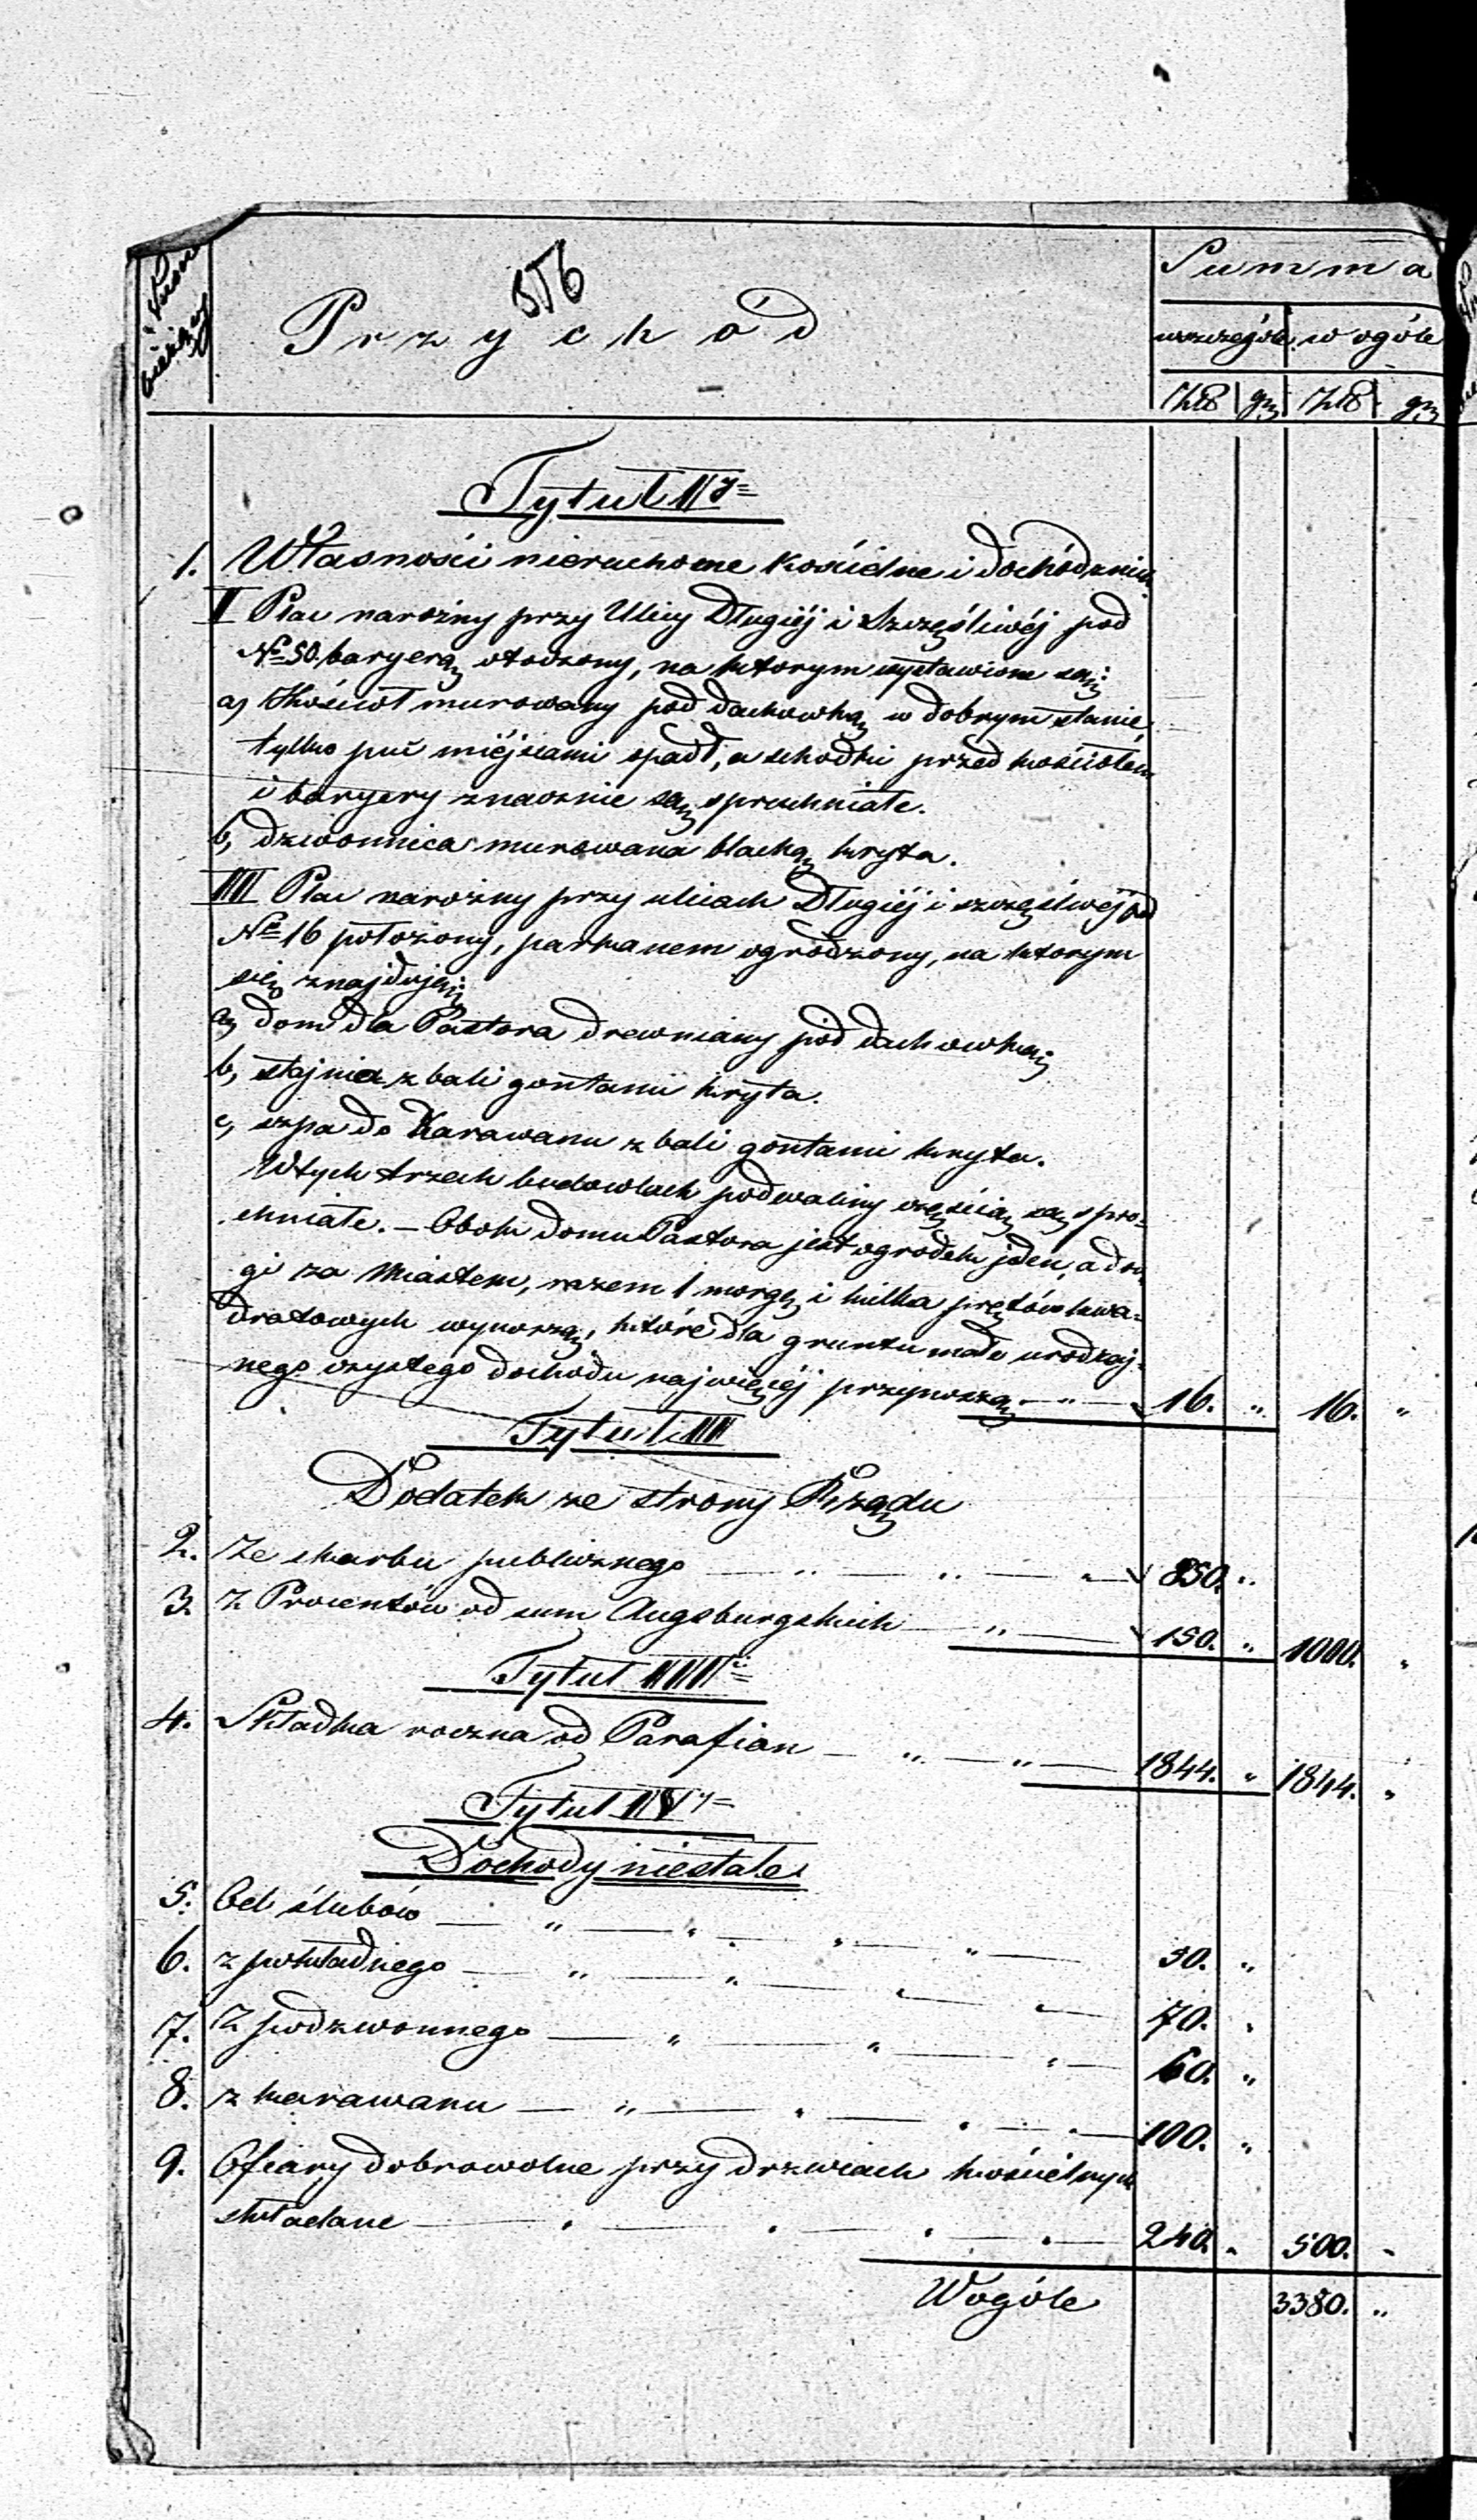 Summa
516
Przychód
wszczególe w ogóle
Złp gr Złp gr
Tytuł I
1. Własności nieruchome Kościelne i dochód z nich
I Plac narożny przy Ulicy Długiéj i Szczęśliwéj pod
No 50. baryerą otoczony, na którym wystawione są:
a, Kościół murowany pod dachówką w dobrym stanie,
tylko puc miéjscami opadł, a schodki przed kościołem
i baryery znacznie są spruchniałe.
b, dzwonnica murowana blachą kryta.
II Plac narożny przy ulicach Długiéj i szczęśliwéj pod
No 16 położony, parkanem ogrodzony, na którym
się znajdują:
a, dom dla Pastora drewniany pod dachówką
b, stajnia z bali gontami kryta.
c, szpa do Karawanu z bali gontami kryta.
W tych trzech budowlach podwaliny częścią są spro-
chniałe. – Obok domu Pastora jest ogrodek jeden, a dru
gi za Miastem, razem 1 morgę i kilka prętów kwa-
dratowych wynoszą, które dla gruntu mało urodzaj-
nego czystego dochodu najwięcéj przynoszą — " — 16. " 16. "
Tytuł II
Dodatek ze strony Rządu
2. Ze skarbu publicznego — " — " — " — 850. "
3. Z Procentów od sum Augsburgskich — " — 150. " 1000. "
Tytuł III
4. Składka roczna od Parafian — " — " — 1844. " 1844. "
Tytuł IV
Dochody niestałe
5. Od ślubów — " — " — " — " — 30. "
6. z pokładnego — " — " — " — " — 70. "
7. Z podzwonnego — " — " — " — 60. "
8. z karawanu — " — " — " — " — 100. "
9. Ofiary dobrowolne przy drzwiach kościelnych
składane — " — " — " — " — 240. " 500. "
Wogóle 3380. "